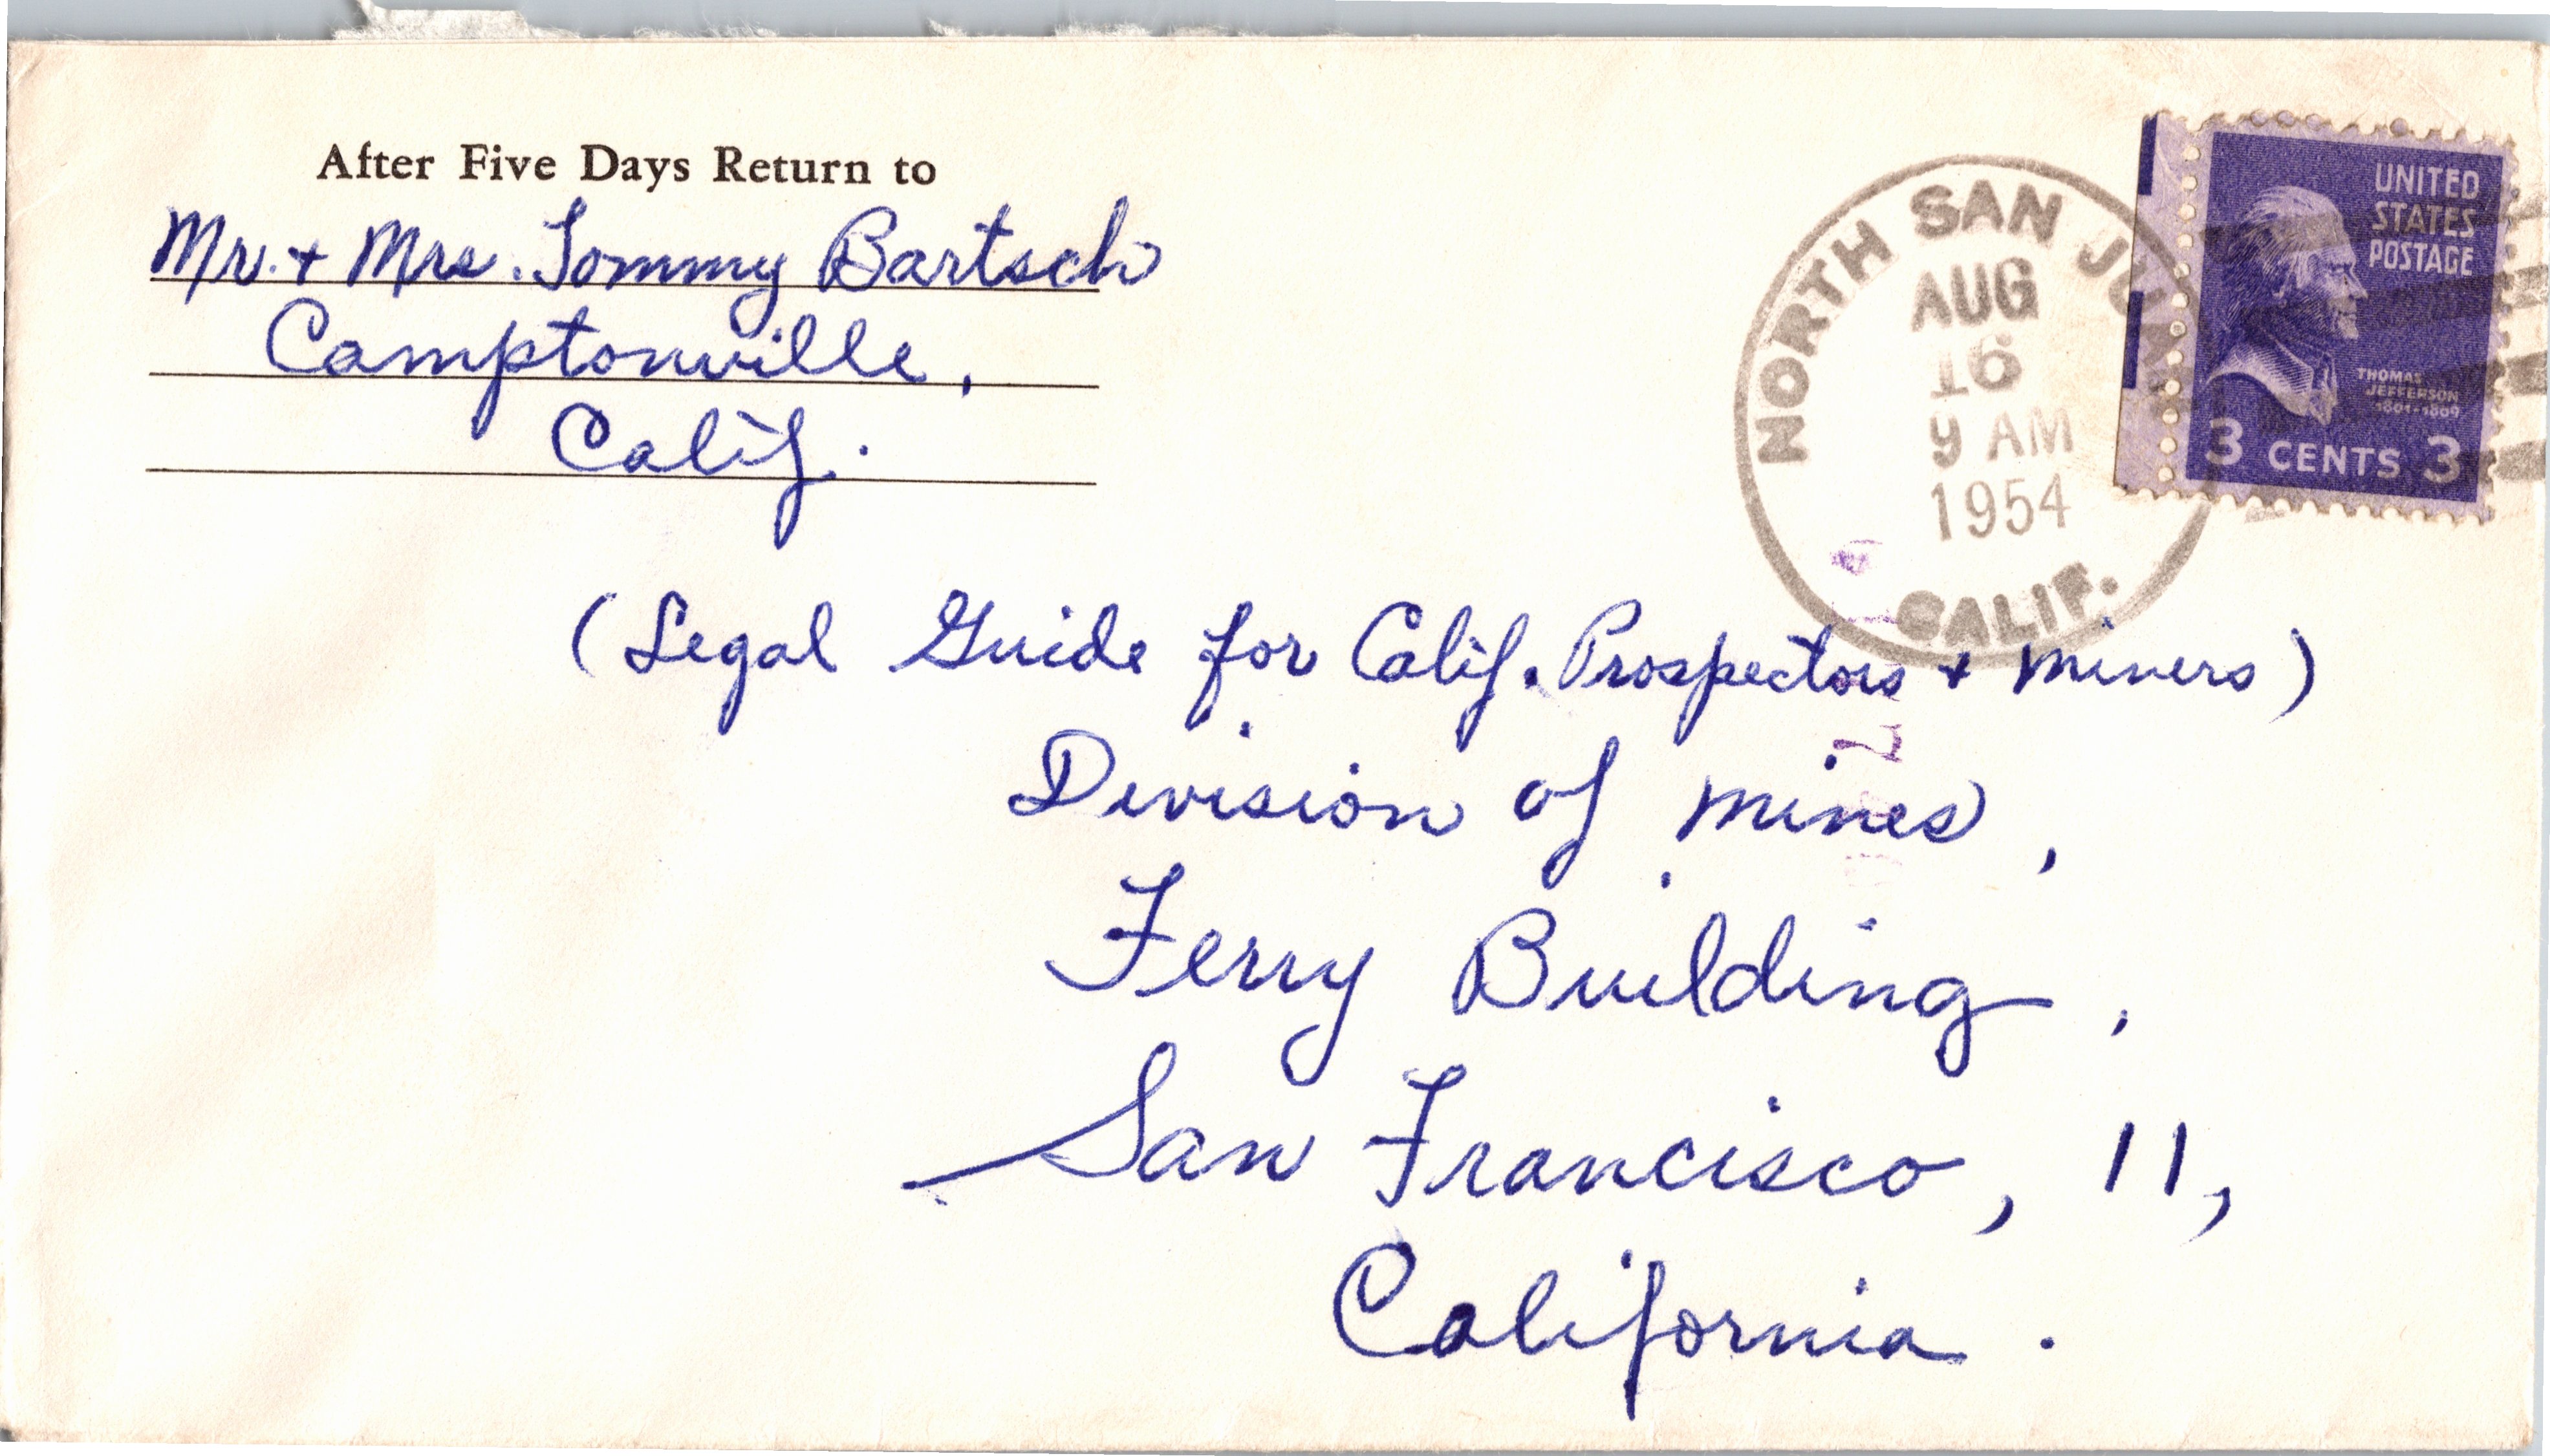 After Five Days Return to
Mr. + Mrs. Tommy Bartsch
Camptonville,
Calif.
NORTH SAN JUAN
AUG
16
9 AM
1954
CALIF.
UNITED
STATES
POSTAGE
THOMAS
JEFFERSON
1801-1809
3 CENTS 3
(Legal Guide for Calif. Prospectors + Miners)
Division of Mines,
Ferry Building,
San Francisco, 11,
California.